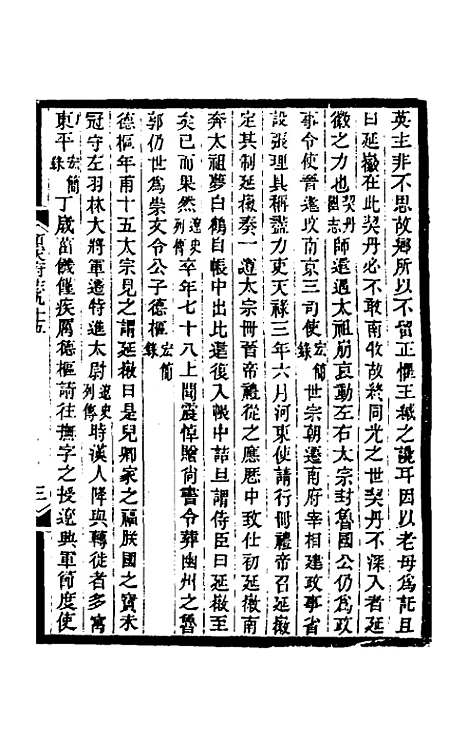 英主非不思故鄉所以不留正懼王緘之讒耳因以老母為託且
曰延徽在此契丹必不敢南牧故終同光之世契丹不深入者延
徽之力也契丹國志師還過太祖崩哀動左右太宗封魯國公仍為政
事令使晉還改南京三司使宏簡錄世宗朝遷南府宰相建政事省
設張理具稱盡力吏天祿三年六月河東使請行冊禮帝召延徽
定其制延徽奏一遵太宗冊晉帝禮從之應歷中致仕初延徽南
奔太祖夢白鶴自帳中出比還復入帳中詰旦謂侍臣曰延徽至
矣已而果然遼史列傳卒年七十八上聞震悼贈尚書令葬幽州之魯
郭仍世為崇文令公子德樞宏簡錄
德樞年甫十五太宗見之謂延徽曰是兒卿家之福朕國之寶未
冠守左羽林大將軍遷特進太尉遼史列傳時漢人降與轉徙者多寓
東平宏簡錄丁歲菑饑僅疾厲德樞請往撫字之授遼興軍節度使
三